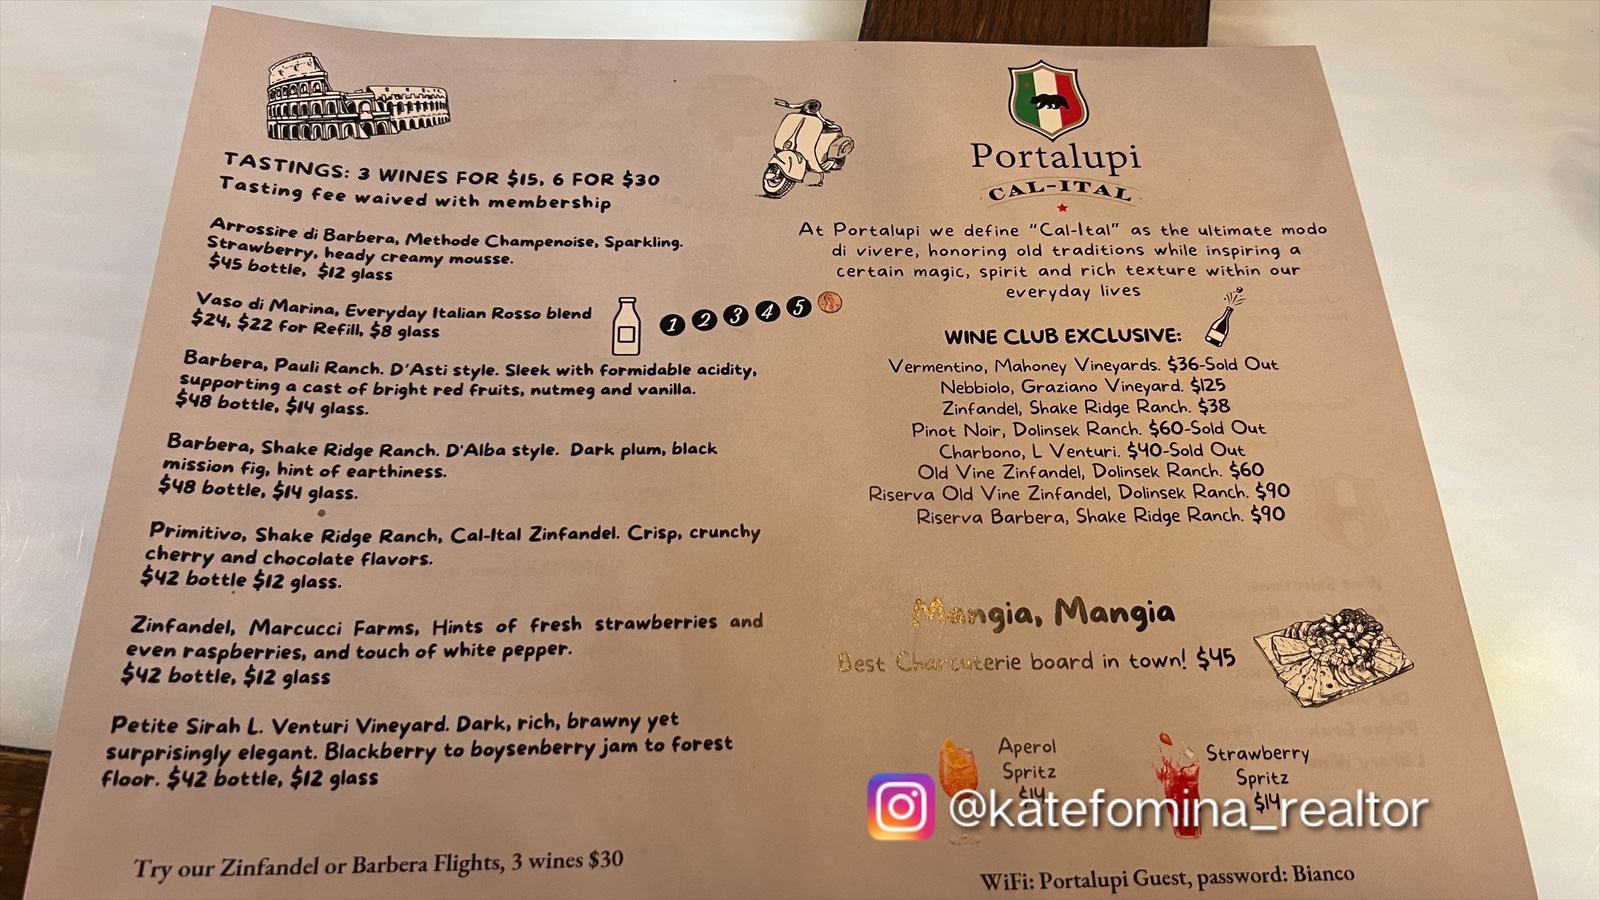 TASTINGS: 3 WINES FOR $15, 6 FOR $30
Tasting fee waived with membership
Arrossire di Barbera, Methode Champenoise, Sparkling.
Strawberry, heady creamy mousse.
$45 bottle, $12 glass
Vaso di Marina, Everyday Italian Rosso blend
$24, $22 for Refill, $8 glass
1 2 3 4 5
Barbera, Pauli Ranch. D'Asti style. Sleek with formidable acidity,
supporting a cast of bright red fruits, nutmeg and vanilla.
$48 bottle, $14 glass.
Barbera, Shake Ridge Ranch. D'Alba style. Dark plum, black
mission fig, hint of earthiness.
$48 bottle, $14 glass.
Primitivo, Shake Ridge Ranch, Cal-Ital Zinfandel. Crisp, crunchy
cherry and chocolate flavors.
$42 bottle $12 glass.
Zinfandel, Marcucci Farms, Hints of fresh strawberries and
even raspberries, and touch of white pepper.
$42 bottle, $12 glass
Petite Sirah L. Venturi Vineyard. Dark, rich, brawny yet
surprisingly elegant. Blackberry to boysenberry jam to forest
floor. $42 bottle, $12 glass
Try our Zinfandel or Barbera Flights, 3 wines $30
Portalupi
CAL-ITAL
At Portalupi we define "Cal-Ital" as the ultimate modo
di vivere, honoring old traditions while inspiring a
certain magic, spirit and rich texture within our
everyday lives
WINE CLUB EXCLUSIVE:
Vermentino, Mahoney Vineyards. $36-Sold Out
Nebbiolo, Graziano Vineyard. $125
Zinfandel, Shake Ridge Ranch. $38
Pinot Noir, Dolinsek Ranch. $60-Sold Out
Charbono, L Venturi. $40-Sold Out
Old Vine Zinfandel, Dolinsek Ranch. $60
Riserva Old Vine Zinfandel, Dolinsek Ranch. $90
Riserva Barbera, Shake Ridge Ranch. $90
Mangia, Mangia
Best Charcuterie board in town! $45
Aperol
Spritz
$14
Strawberry
Spritz
$14
@katefomina_realtor
WiFi: Portalupi Guest, password: Bianco